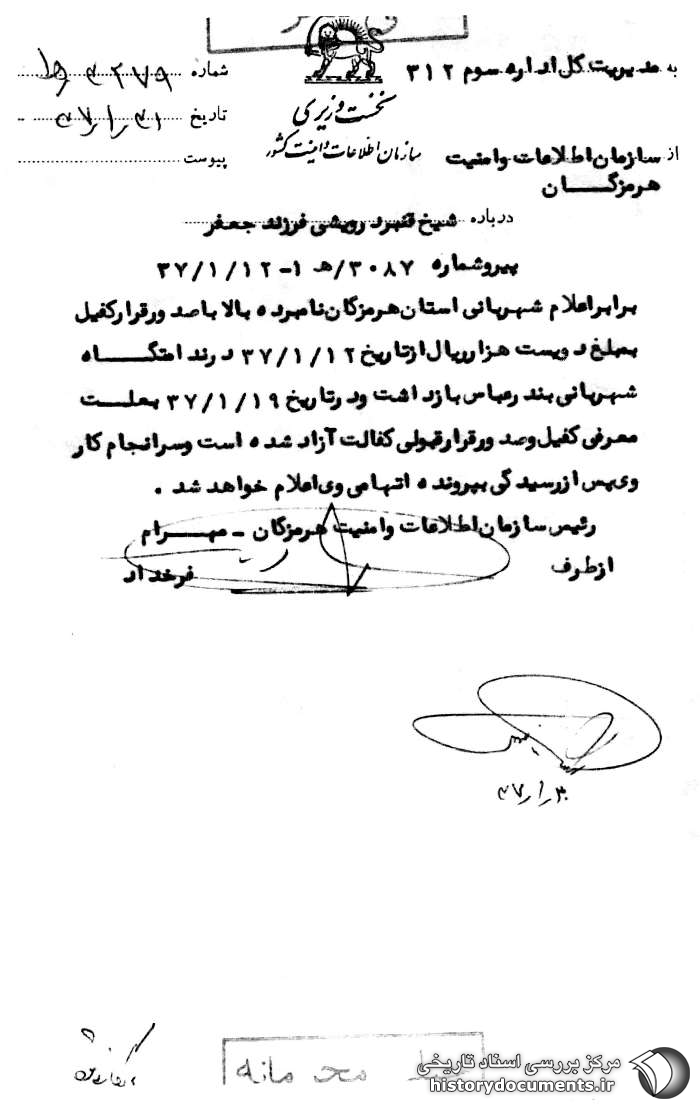 به مدیریت کل اداره سوم ۳۱۲
شماره ۳۲۷۹
نخست وزیری
تاریخ
سازمان اطلاعات و امنیت کشور
پیوست
از سازمان اطلاعات و امنیت
هرمزگان
درباره شیخ قنبر درویشی فرزند جعفر
پیرو شماره ۳۰۸۷/هـ ۱-۳۷/۱/۱۲
برابر اعلام شهربانی استان هرمزگان نامبرده بالا با صدور قرار کفیل
بمبلغ دویست هزار ریال از تاریخ ۳۷/۱/۱۲ در ندامتگاه
شهربانی بندرعباس بازداشت و در تاریخ ۳۷/۱/۱۹ بعلت
معرفی کفیل و صدور قرار قبولی کفالت آزاد شده است و سرانجام کار
وی پس از رسیدگی بپرونده اتهامی وی اعلام خواهد شد .
رئیس سازمان اطلاعات و امنیت هرمزگان - مهرام
از طرف
فرخداد
محرمانه
مرکز بررسی اسناد تاریخی
historydocuments.ir